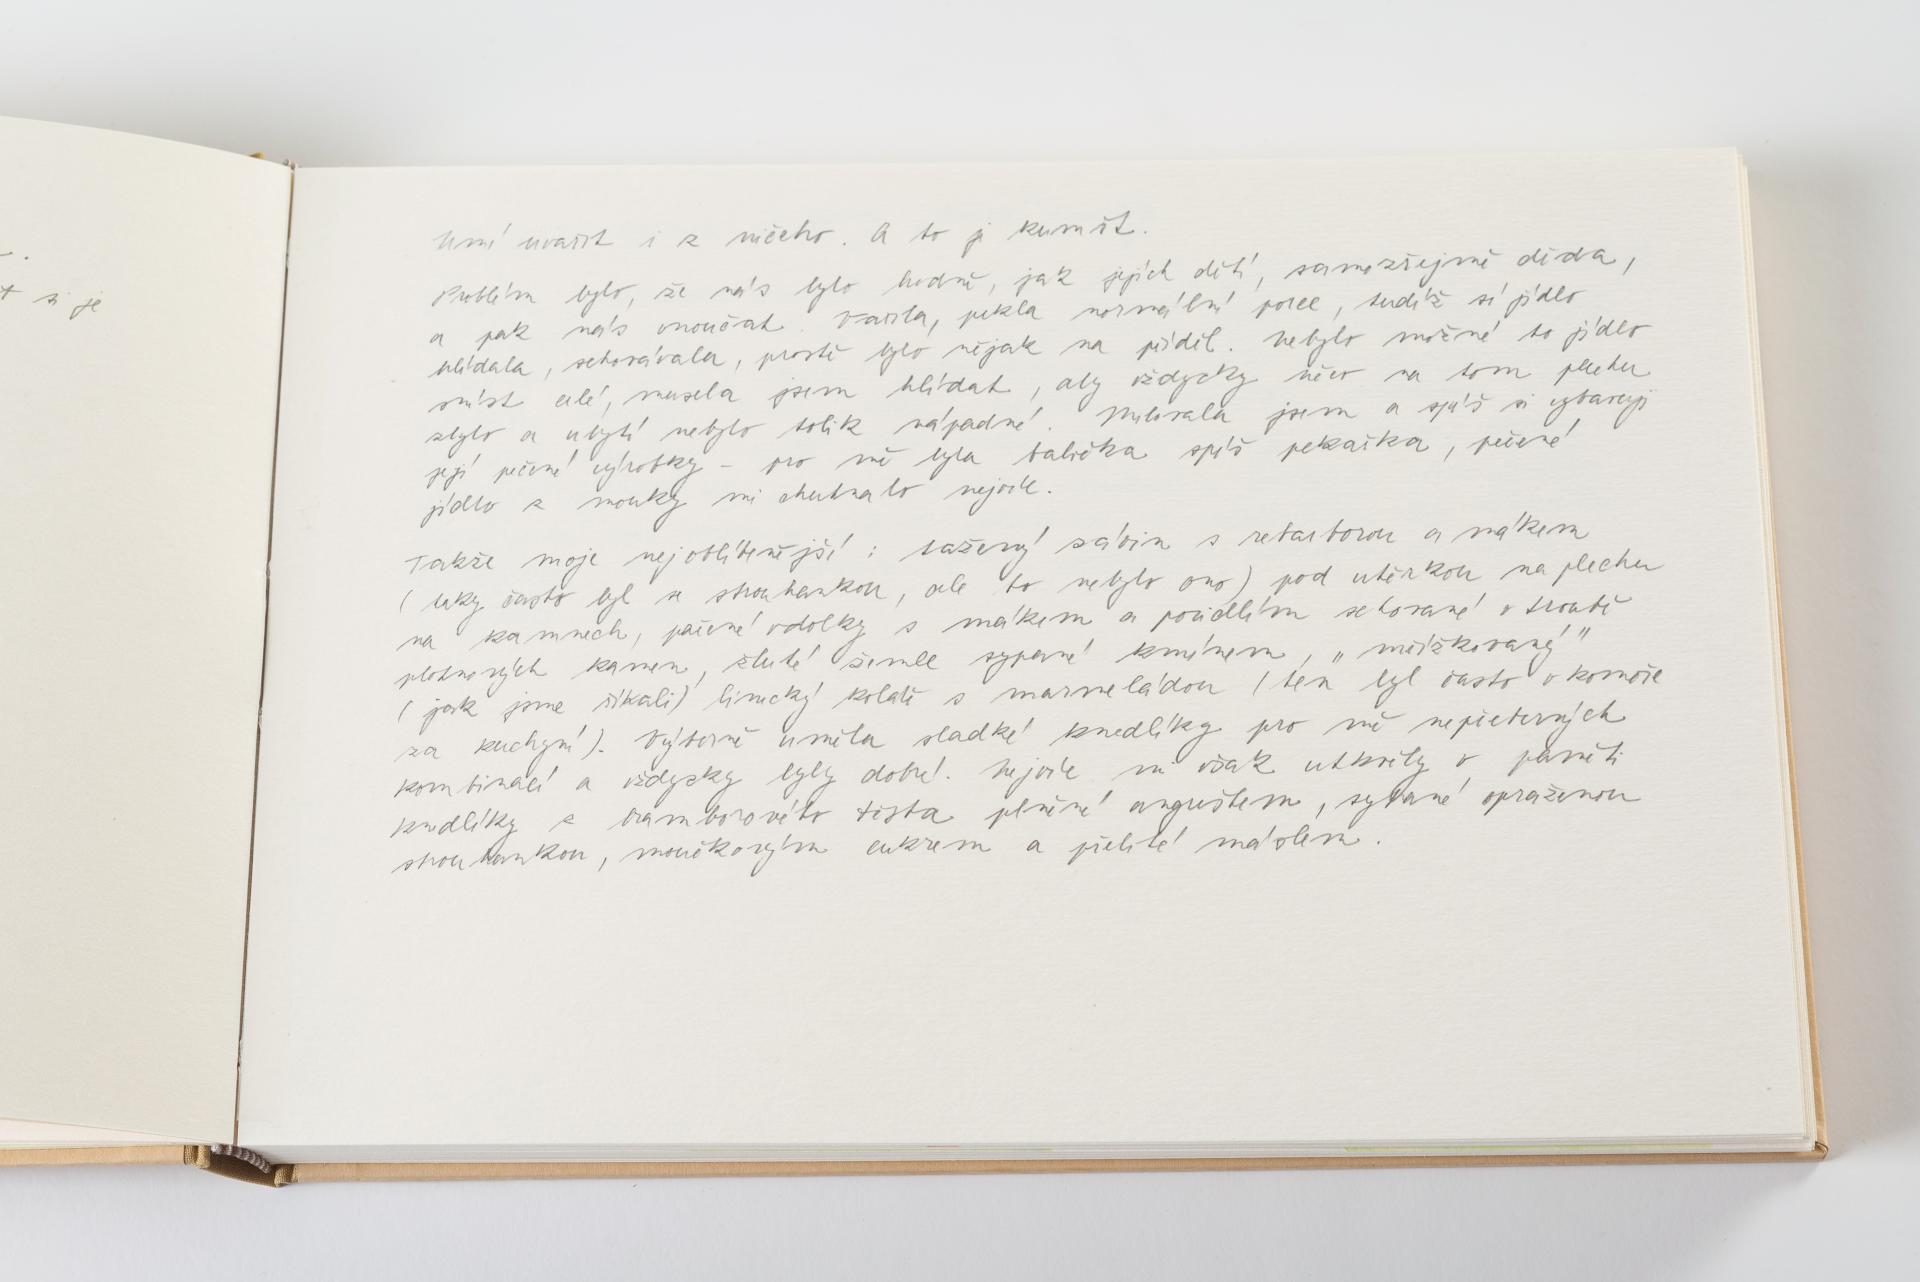 si je
Umí uvařit i z ničeho. A to je kumšt.
Problém bylo, že nás bylo hodně, jak jejích dětí, samozřejmě děda,
a pak nás vnoučat. Vařila, pekla normální porce, tudíž si jídlo
hlídala, schovávala, prostě bylo nějak na příděl. Nebylo možné to jídlo
sníst celé, musela jsem hlídat, aby vždycky něco na tom plechu
zbylo a ubytí nebylo tolik nápadné. Milovala jsem a spíš si vybavuji
její pečené výrobky – pro mě byla babička spíš pekařka, pečené
jídlo z mouky mi chutnalo nejvíc.
Takže moje nejoblíbenější: tažený závin s rebarborou a mákem
(taky často byl se strouhankou, ale to nebylo ono) pod utěrkou na plechu
na kamnech, pečené vdolky s mákem a povidlím schované v troubě
plotnových kamen, žluté žemle sypané kmínem, „mřížkovaný"
(jak jsme říkali) linecký koláč s marmeládou (ten byl často v komoře
za kuchyní). Výborně uměla sladké knedlíky pro mě nepřeberných
kombinací a vždycky byly dobré. Nejvíc mi však utkvěly v paměti
knedlíky z bramborového těsta plněné angreštem, sypané opraženou
strouhankou, moučkovým cukrem a přelité máslem.